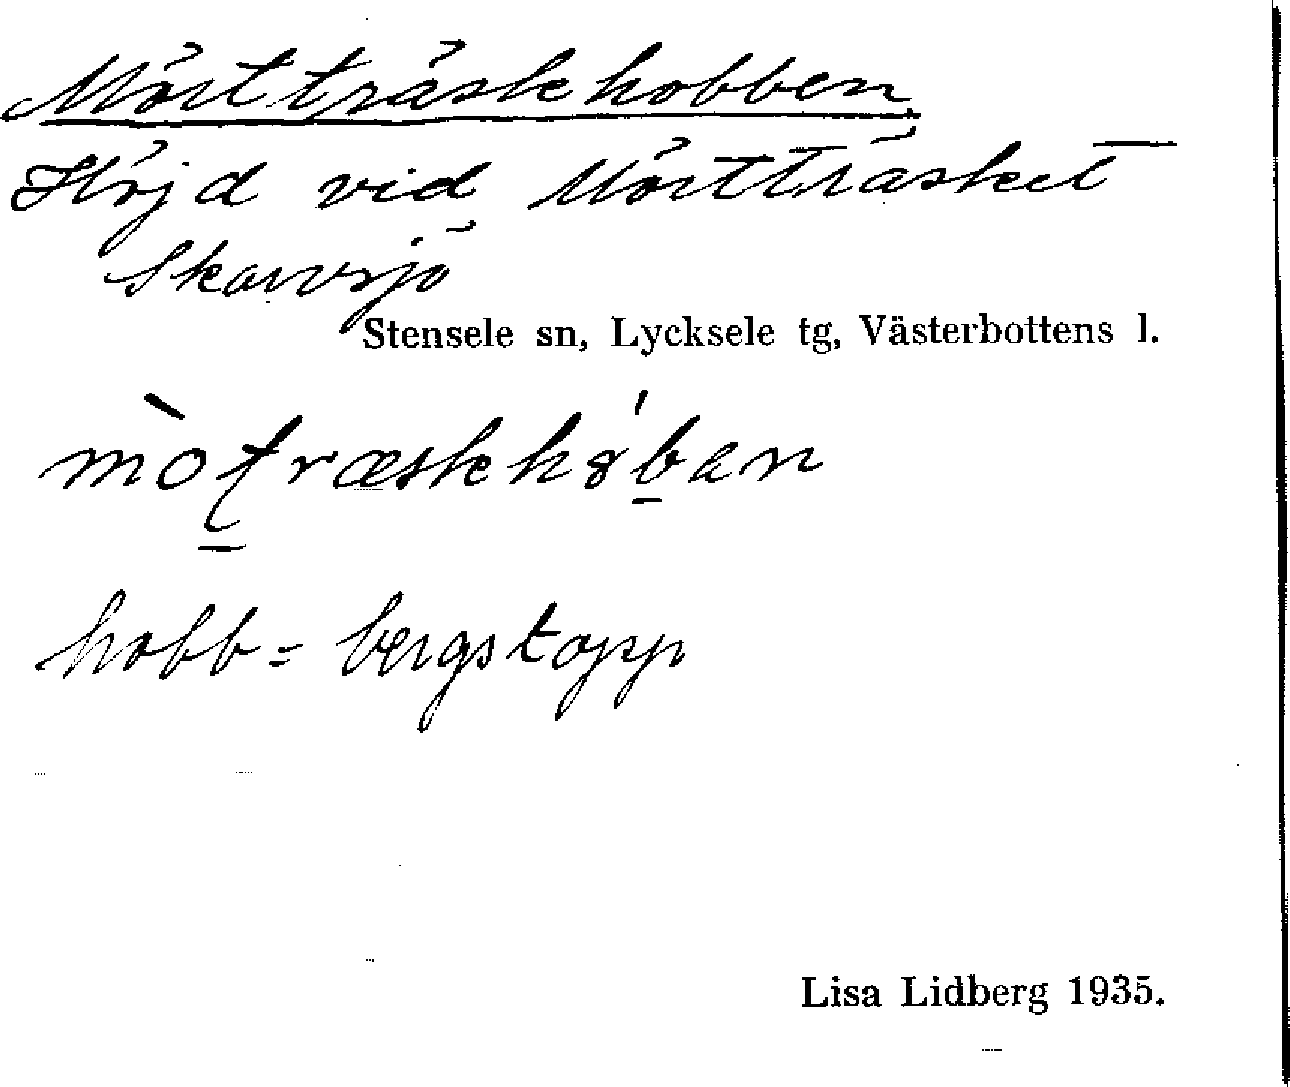 Mörtträskhobben
Höjd vid Mörtträsket
Skarvsjö
Stensele sn, Lycksele tg, Västerbottens l.
hobb = bergstopp
Lisa Lidberg 1935.